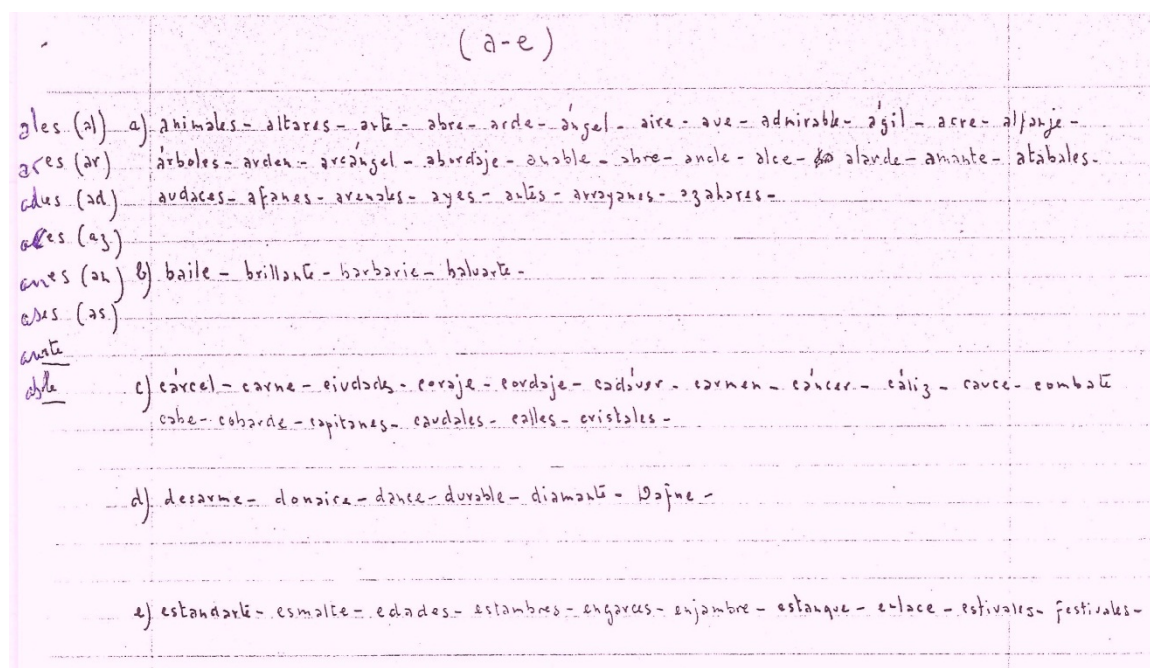 (a-e)
ales (al) a) animales - altares - arte - abre - arde - ángel - aire - ave - admirable - ágil - acre - alfanje -
ares (ar) árboles - arden - arcángel - abordaje - amable - abre - ancle - alce - alarde - amante - atabales -
ades (ad.) audaces - afanes - arenales - ayes - antes - arrayanes - azahares -
aces (az)
anes (an) b) baile - brillante - barbarie - baluarte -
ases (as.)
ante
able c) cárcel - carne - ciudades - coraje - cordaje - cadáver - carmen - cáncer - cáliz - cauce - combate
cabe - cobarde - capitanes - caudales - calles - cristales -
d) desarme - donaire - dance - durable - diamante - Dafne -
e) estandarte - esmalte - edades - estambres - engarces - enjambre - estanque - enlace - estivales - festivales -